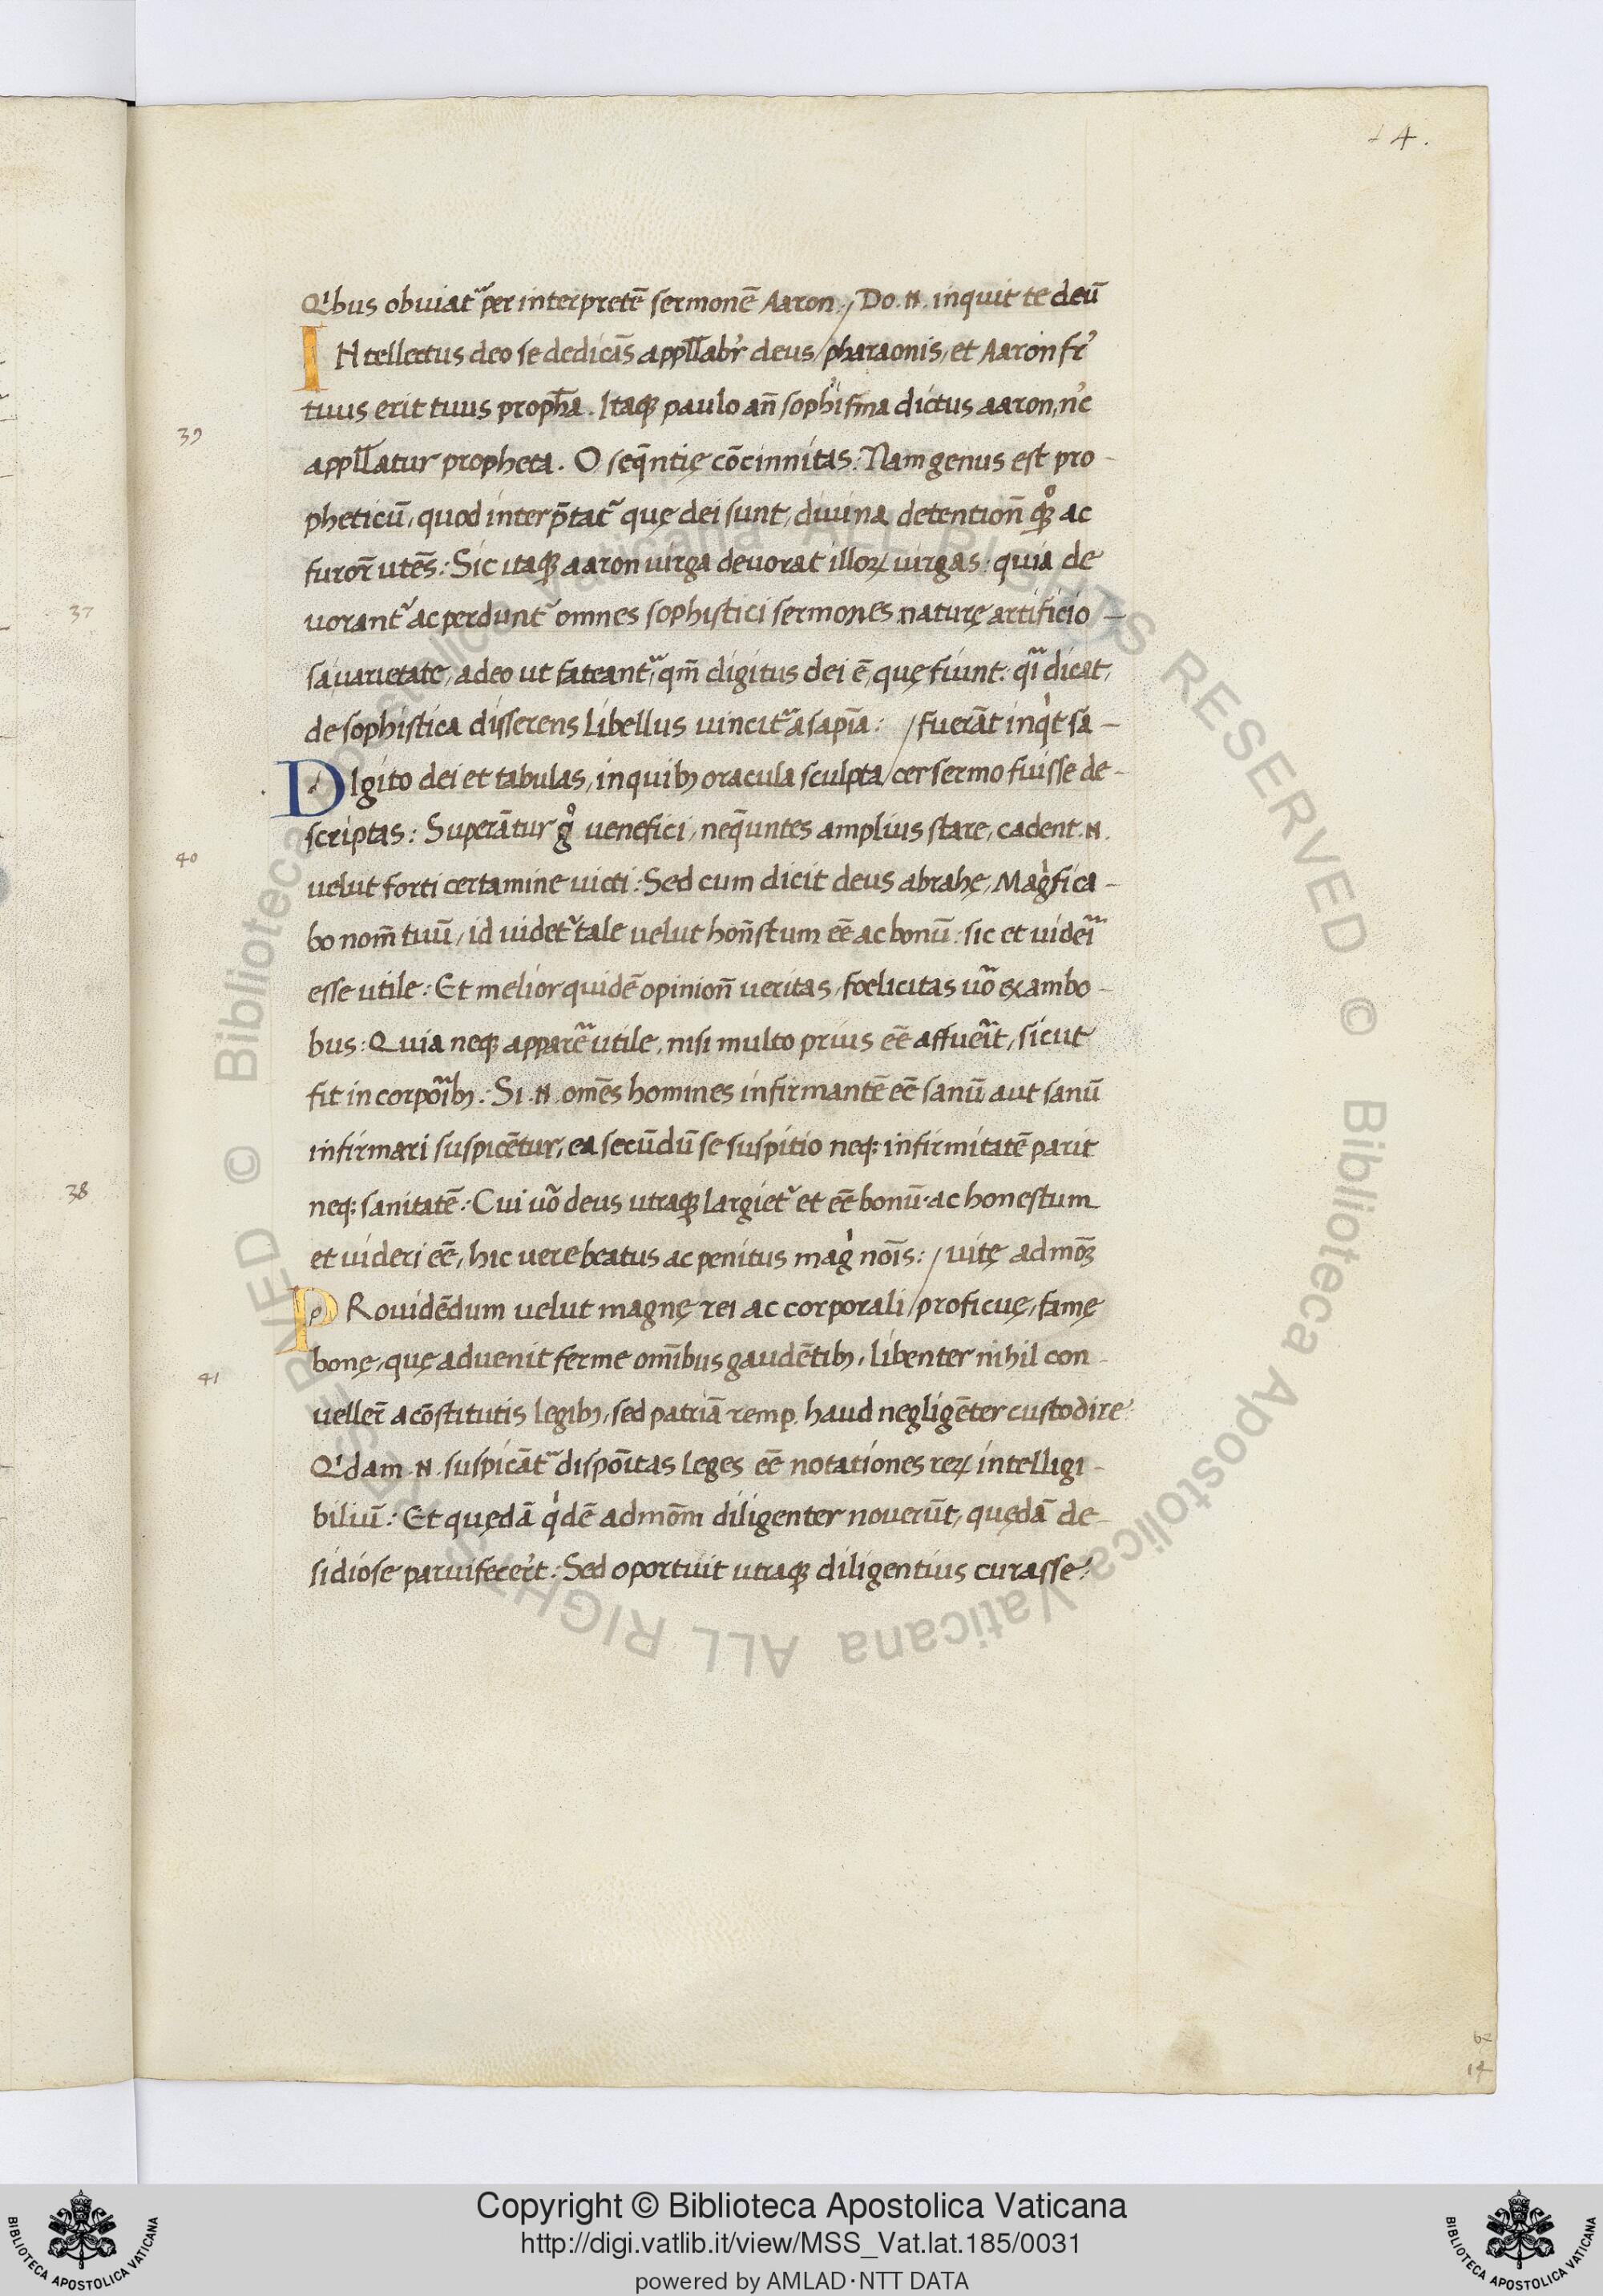 14.
Qͥbus obuiatᷓ per interpretē sermonē Aaron: / Do .N. inquit te deū
INtellectus deo se dedicās appłłabr̓ deus / pharaonis, et Aaron fr̓
tuus erit tuus propħa. Itaqꝫ paulo an̄ sophisma dictus aaron, nc̓
39
appłłatur propheta. O seq̄ntię cōcinnitas: Nam genus est pro-
pheticū, quod interp̄tat᷑ quę dei sunt, diuina detention̄ qꝫͦ ac
furor̄ utēs: Sic itaqꝫ aaron uirga deuorat illoꝝ uirgas: quia de
37
uorant᷑ ac perdunt᷑ omnes sophistici sermones naturę artificio-
sa uarietate, adeo ut fateantᷓ, qm̄ digitus dei ē, quę fiunt: qᷓi dicat,
de sophistica disserens libellus uincitᷓ a sapīa: / fuerāt inqͥt sa-
DIgito dei et tabulas, in quibꝫ oracula sculpta / cer sermo fuisse de-
scriptas: Superātur gͦ uenefici, neq̄untes amplius stare, cadent .N.
40
uelut forti certamine uicti: Sed cum dicit deus abrahę, Magͥfica-
bo nom̄ tuū, id uidet᷑ tale uelut hon̄stum eē ac bonū: sic et uideiᷓ
esse utile: Et melior quidē opinion̄ ueritas, foelicitas uō ex ambo-
bus: Quia neqꝫ apparēᷓ utile, nisi multo prius eē affueīt, sicut
fit in corpoībꝫ: Si .N. omēs homines infirmantē eē sanū aut sanū
infirmari suspicētur, ea secūdū se suspitio neqꝫ infirmitatē parit
38
neqꝫ sanitatē: Cui uō deus utraqꝫ largiet᷑ et eē bonū ac honestum
et uideri eē, hic uere beatus ac penitus magͥ noīs: / uitę admoꝫ̄
PRouidēdum uelut magnę rei ac corporali / proficuę, famę
bonę, quę aduenit ferme omībus gaudētibꝫ, libenter nihil con-
41
ueller̄ a cōstitutis legibꝫ, sed patriā remp. haud negligēter custodire
Qͥdam .N. suspicātᷓ dispoītas leges eē notationes reꝝ intelligi-
biliū: Et quędā qͥdē admōm diligenter nouerūt, quędā de-
sidiose paruifecer̓t: Sed oportuit utraqꝫ diligentius curasse:
62
14
© Biblioteca Apostolica Vaticana ALL RIGHTS RESERVED © Biblioteca Apostolica Vaticana ALL RIGHTS RESERVED
BIBLIOTECA APOSTOLICA VATICANA
Copyright © Biblioteca Apostolica Vaticana
http://digi.vatlib.it/view/MSS_Vat.lat.185/0031
powered by AMLAD·NTT DATA
BIBLIOTECA APOSTOLICA VATICANA